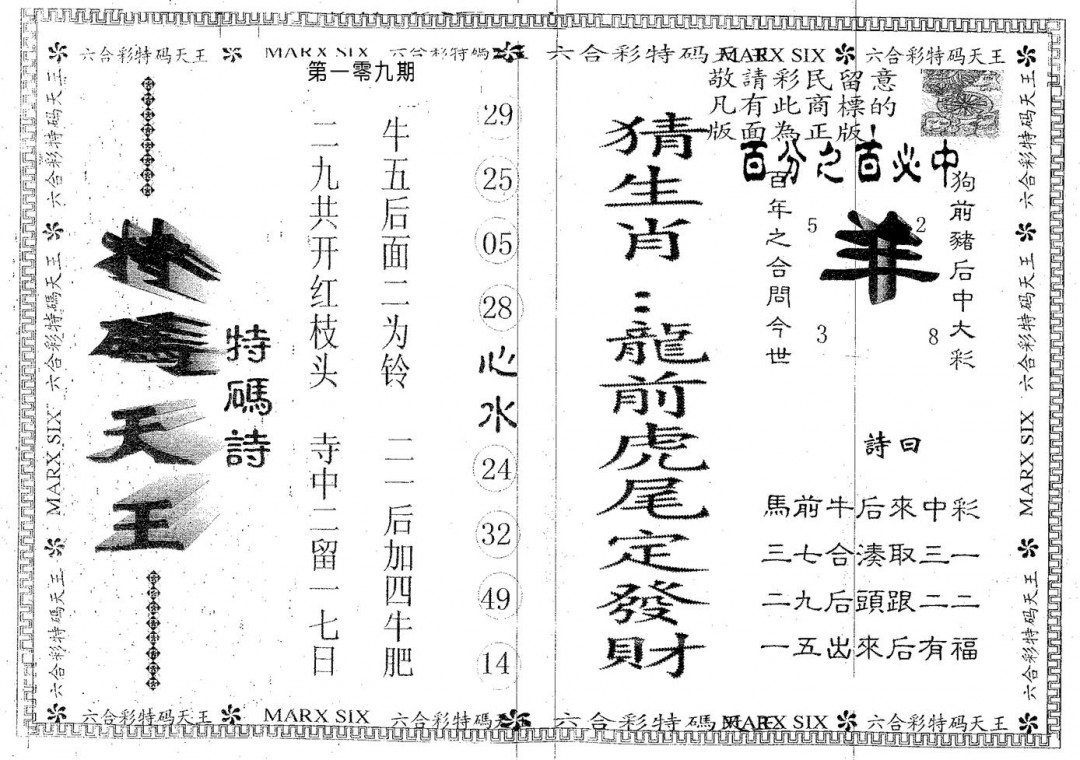 六合彩特码天王 MARX SIX 六合彩特碼天王 六合彩特码天王 MARX SIX 六合彩特码天王
第一零九期
敬請彩民留意
凡有此商標的
版面為正版!
百分之百必中
狗前豬后中大彩
羊
5 2
3 8
百年之合問今世
詩曰
馬前牛后來中彩
三七合湊取三一
二九后頭跟二二
一五出來后有福
猜生肖:龍前虎尾定發財
29
25
05
28
心水
24
32
49
14
牛五后面二为铃 二一后加四牛肥
二九共开红枝头 寺中二留一七日
特碼詩
特碼天王
六合彩特碼天王 六合彩特碼天王 MARX SIX 六合彩特碼天王
六合彩特码天王 六合彩特码天王 MARX SIX 六合彩特码天王
六合彩特码天王 MARX SIX 六合彩特碼天王 六合彩特碼天王 MARX SIX 六合彩特码天王